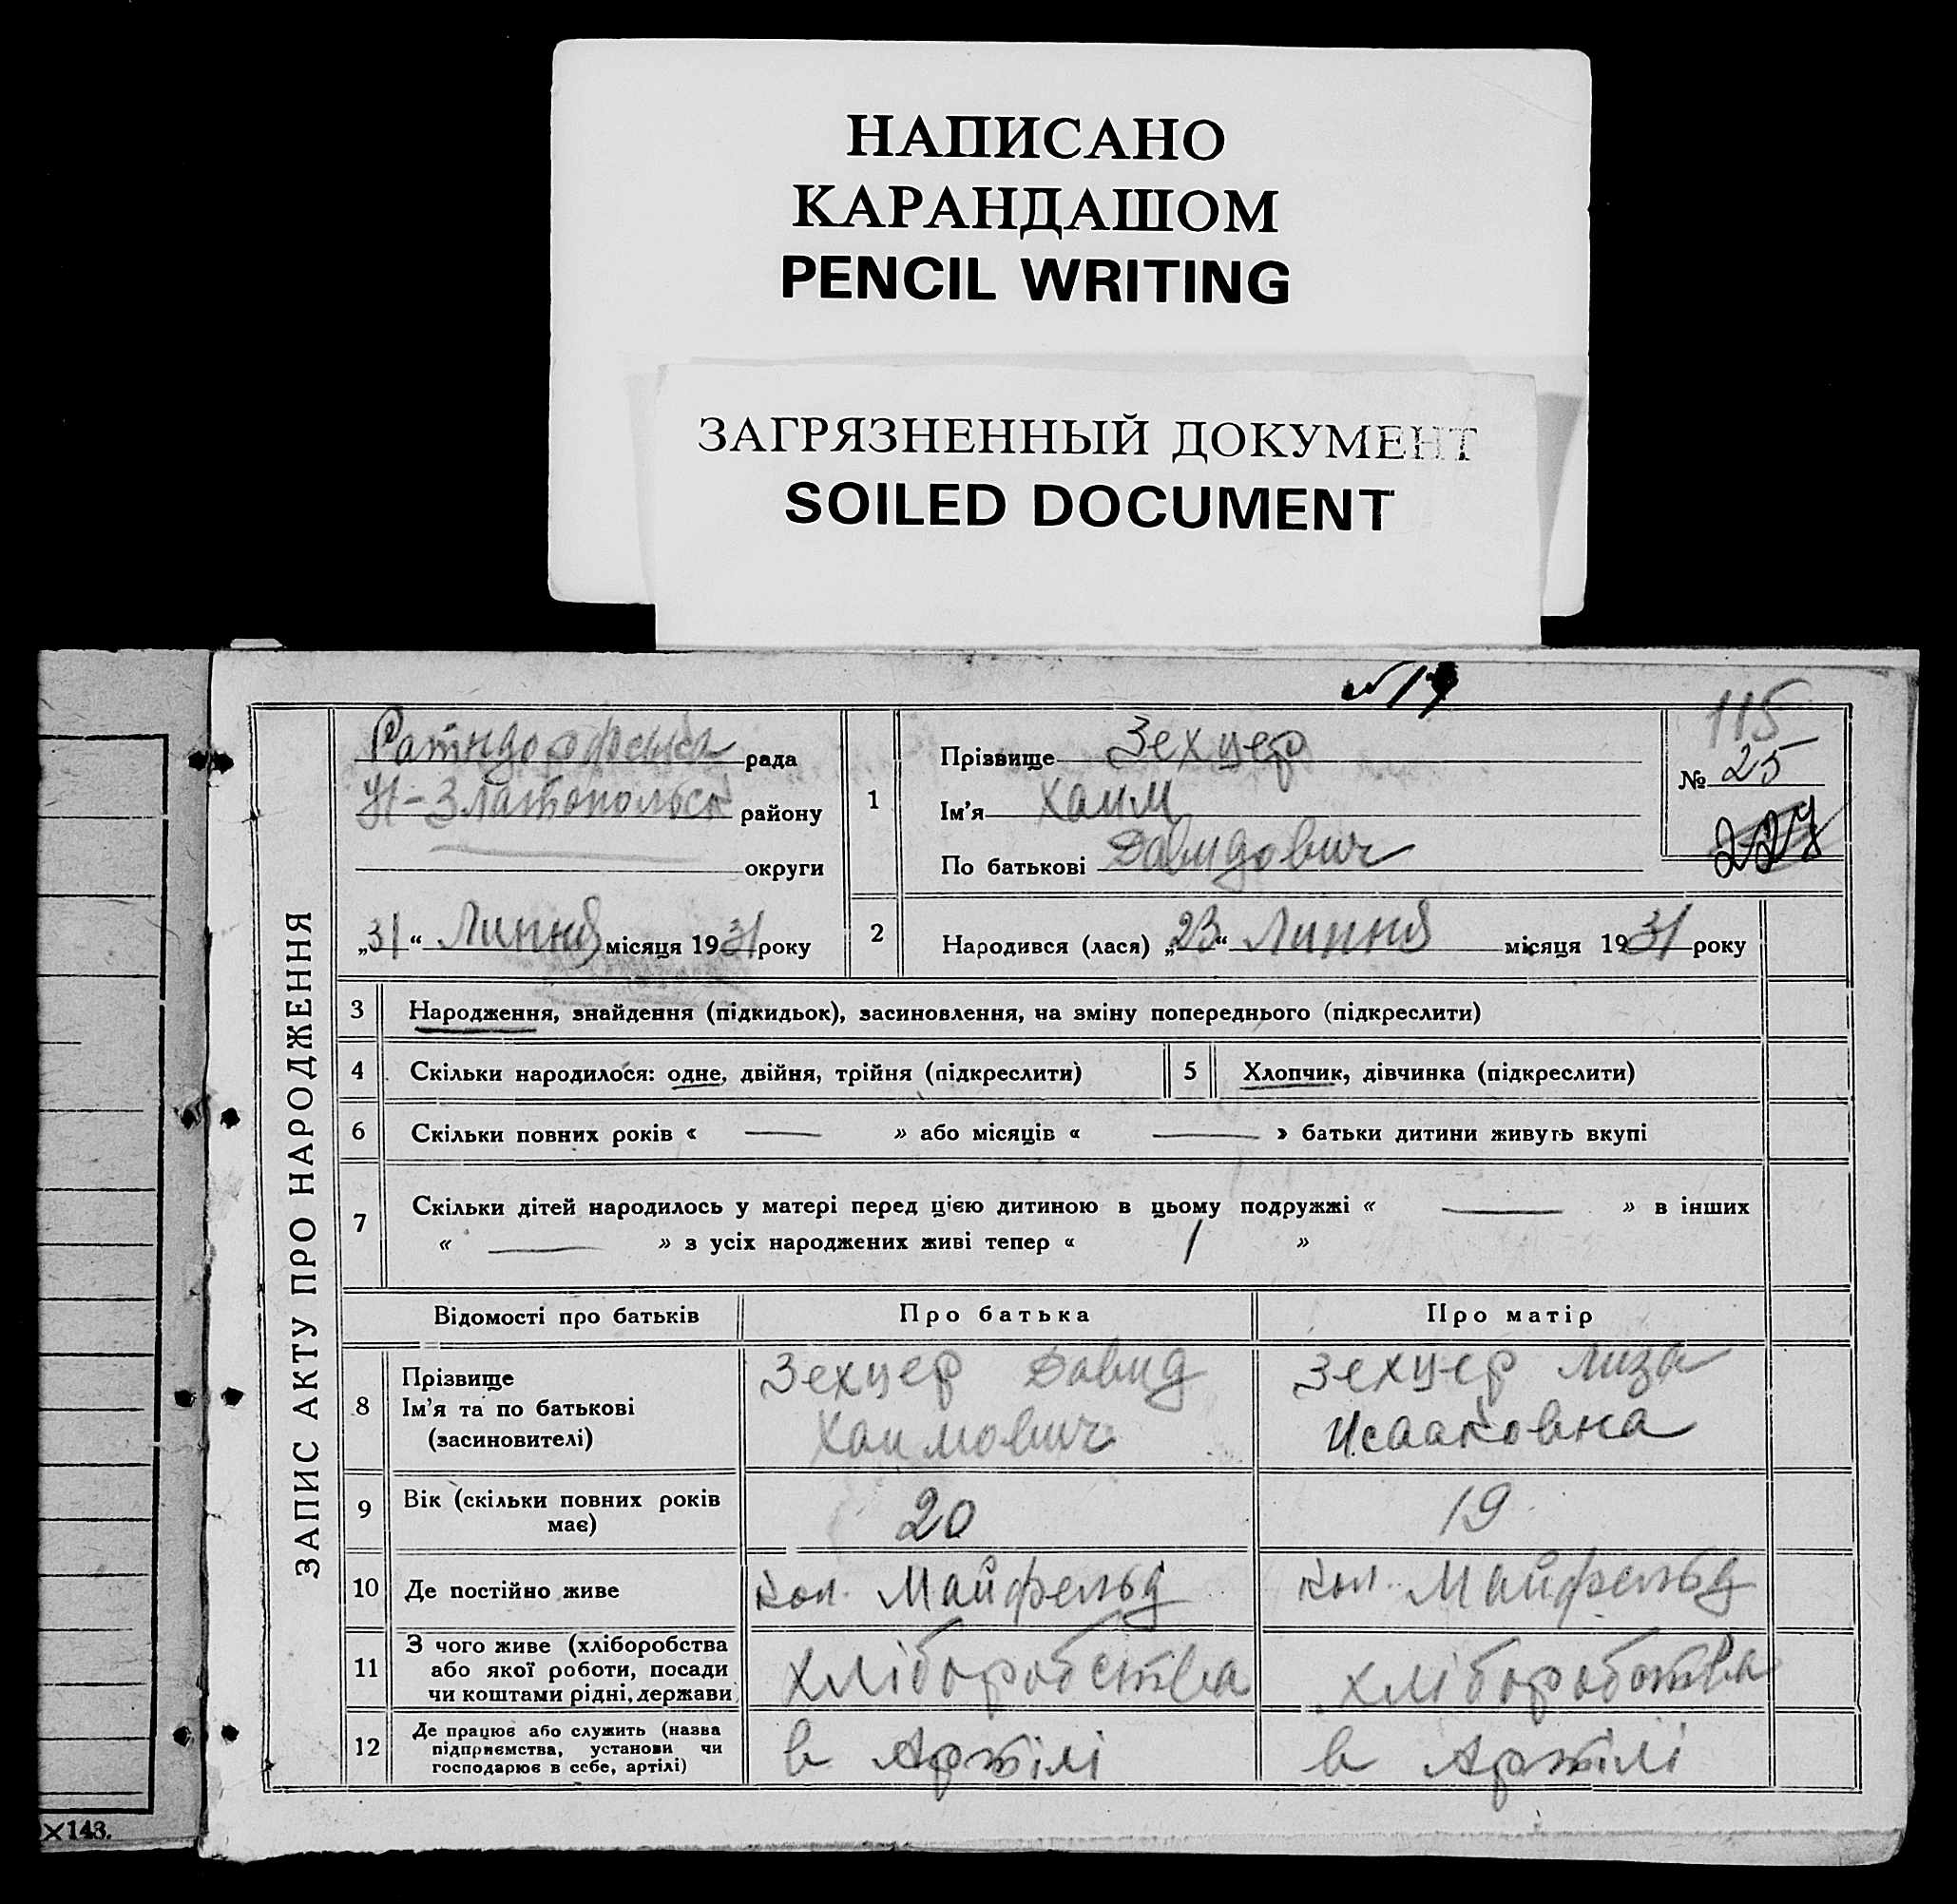 НАПИСАНО
КАРАНДАШОМ
PENCIL WRITING
ЗАГРЯЗНЕННЫЙ ДОКУМЕНТ
SOILED DOCUMENT
115
ЗАПИС АКТУ ПРО НАРОДЖЕННЯ
Ратндорфська рада
Н-Златопольск району
округи
„31“ Липня місяця 1931 року
1
Прізвище Зехцер
Ім’я Хаим
По батькові Давидович
№ 25
227
2
Народився (лася) „23“ Липня місяця 1931 року
3 Народження, знайдення (підкидьок), засиновлення, на зміну попереднього (підкреслити)
4 Скільки народилося: одне, двійня, трійня (підкреслити)
5 Хлопчик, дівчинка (підкреслити)
6 Скільки повних років « — » або місяців « — » батьки дитини живуть вкупі
7 Скільки дітей народилось у матері перед цією дитиною в цьому подружжі « — » в інших
« — » з усіх народжених живі тепер « 1 »
Відомості про батьків Про батька Про матір
8 Прізвище
Ім’я та по батькові
(засиновителі)
Зехцер Давид
Хаимович
Зехцер Лиза
Исааковна
9 Вік (скільки повних років
має)
20
19
10 Де постійно живе кол. Майфельд кол. Майфельд
11 З чого живе (хліборобства
або якої роботи, посади
чи коштами рідні, держави
хліборобства
хліборобства
12 Де працює або служить (назва
підприємства, установи чи
господарює в себе, артілі)
в Артілі
в Артілі
×143.